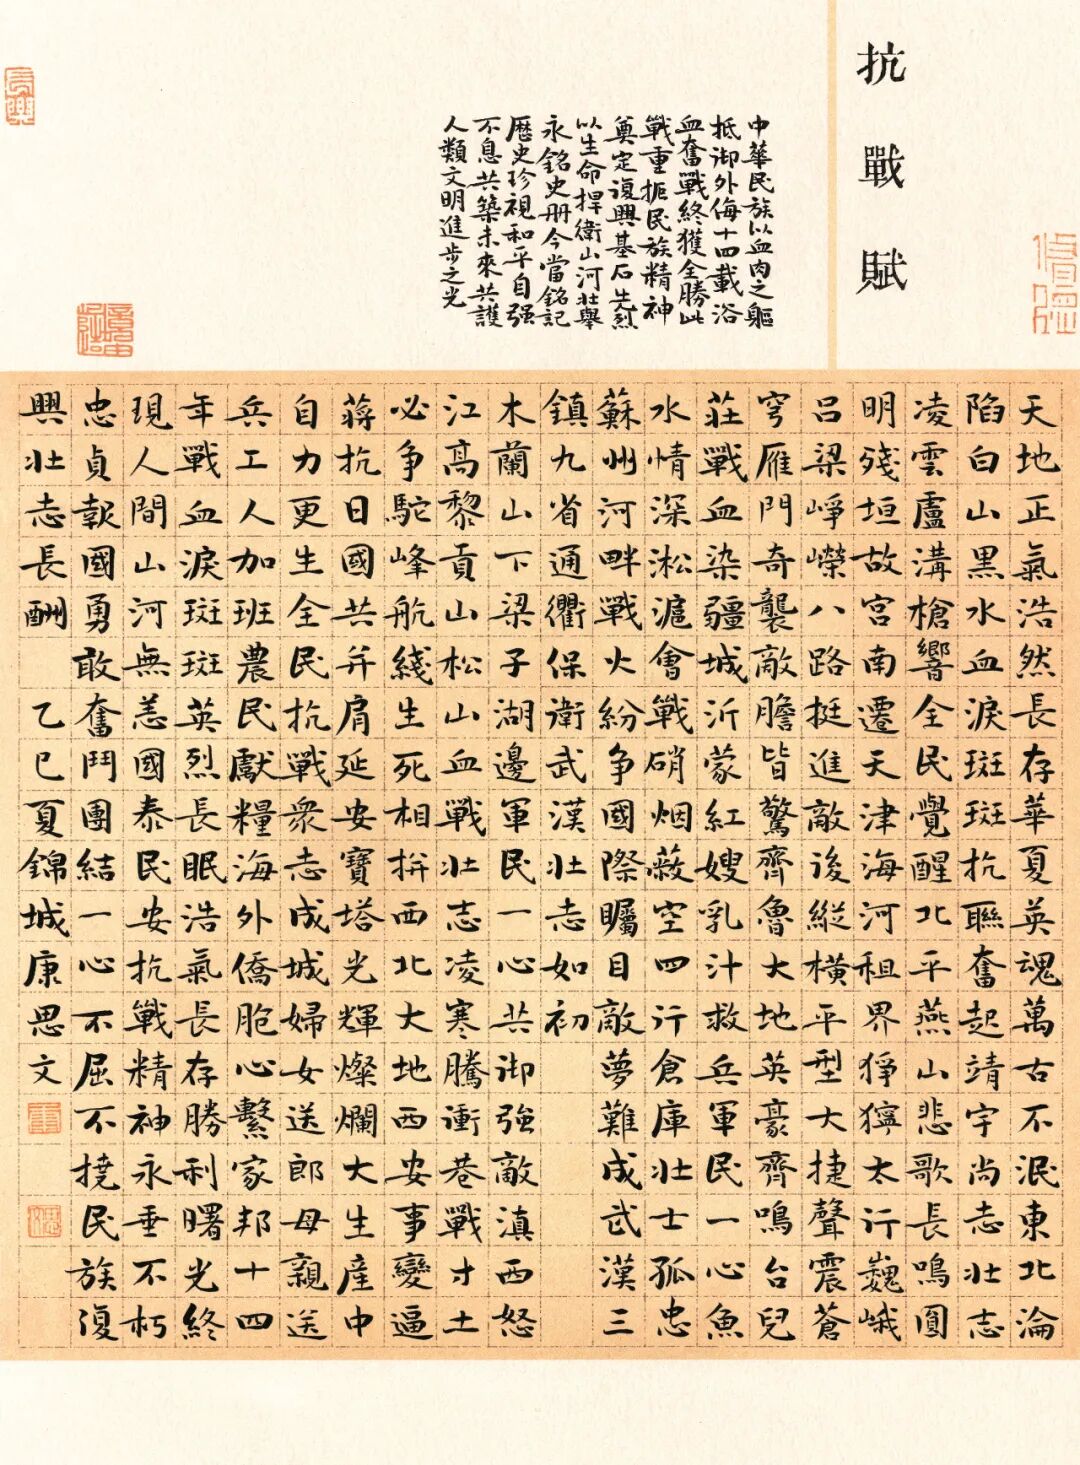 抗戰賦
中華民族以血肉之軀
抵御外侮十四載浴
血奮戰終獲全勝此
戰重振民族精神
奠定復興基石先烈
以生命捍衛山河壯舉
永銘史册今當銘記
歷史珍視和平自强
不息共築未來共護
人類文明進步之光
天地正氣浩然長存華夏英魂萬古不泯東北淪
陷白山黑水血淚斑斑抗聯奮起靖宇尚志壯志
凌雲盧溝槍響全民覺醒北平燕山悲歌長鳴圓
明殘垣故宮南遷天津海河租界猙獰太行巍峨
呂梁崢嶸八路挺進敵後縱橫平型大捷聲震蒼
穹雁門奇襲敵膽皆驚齊魯大地英豪齊鳴台兒
莊戰血染疆城沂蒙紅嫂乳汁救兵軍民一心魚
水情深淞滬會戰硝烟蔽空四行倉庫壯士孤忠
蘇州河畔戰火紛爭國際矚目敵夢難成武漢三
鎮九省通衢保衛武漢壯志如初
木蘭山下梁子湖邊軍民一心共御強敵滇西怒
江高黎貢山松山血戰壯志凌寒騰衝巷戰寸土
必爭駝峰航綫生死相拚西北大地西安事變逼
蔣抗日國共并肩延安寶塔光輝燦爛大生產中
自力更生全民抗戰衆志成城婦女送郎母親送
兵工人加班農民獻糧海外僑胞心繫家邦十四
年戰血淚斑斑英烈長眠浩氣長存勝利曙光終
現人間山河無恙國泰民安抗戰精神永垂不朽
忠貞報國勇敢奮鬥團結一心不屈不撓民族復
興壯志長酬 乙巳夏錦城康思文